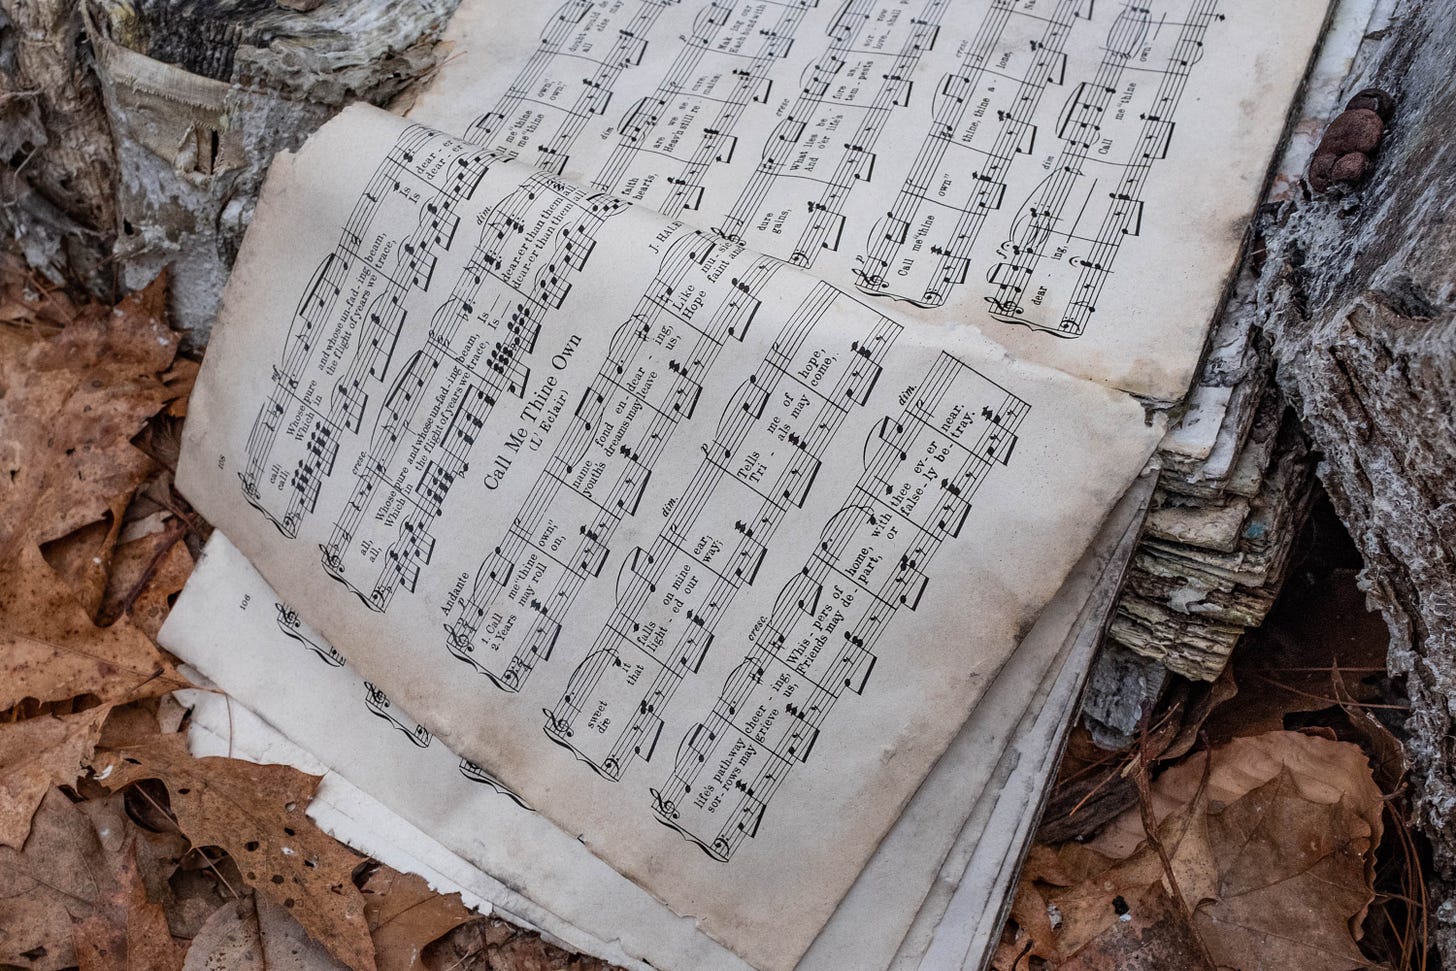 108
call;
call;
Whose pure and whose un-fad-ing beam, Is dear-er
Which in the flight of years we trace, Is dear-er
dim.
cresc.
all, Whose pure and whose un-fad-ing beam, Is dear-er than them all
all, Which in the flight of years we trace, Is dear-er than them all
Call Me Thine Own
(L' Eclair)
Andante
p
1. Call me "thine own," name fond en-dear - ing, Like mu-sic
2. Years may roll on, youth's dreams may leave us, Hope faint and
dim.
p
sweet it falls on mine ear; Tells me of hope,
that light - ed our way; Tri - als may come,
cresc.
dim.
life's path-way cheer - ing, Whis - pers of home, with thee ev-er near.
sor - rows may grieve us, Friends may de-part, or false-ly be-tray.
106
own,"
own;"
me "thine
me "thine
dim
faith are we
hearts, Heav'n still re
Mak-ing our
Each bond with
cresc
dure What lies be fore us,
gains, And o'er life's tem pests
p
cresc
Call me "thine own" thine, thine a - lone,
f
dim
dear ing, Call me "thine own"